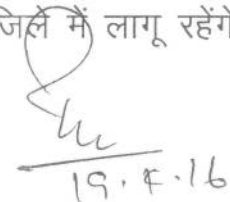 जिले में लागू रहेंगे
19.4.16